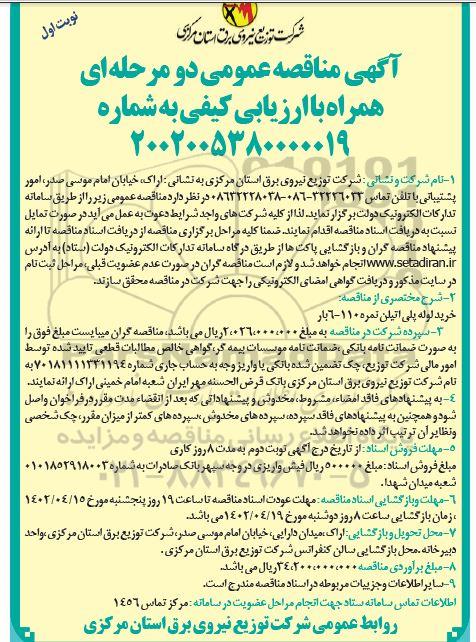 نوبت اول
شرکت توزیع نیروی برق استان مرکزی
آگهی مناقصه عمومی دو مرحله‌ای
همراه با ارزیابی کیفی به شماره
۲۰۰۲۰۰۵۳۸۰۰۰۰۰۱۹
۱-نام شرکت و نشانی : شرکت توزیع نیروی برق استان مرکزی به نشانی : اراک، خیابان امام موسی صدر، امور
پشتیبانی با تلفن تماس ۳۲۲۲۶۰۳۳-۰۸۶ در نظر دارد مناقصه عمومی زیر را از طریق سامانه
تدارکات الکترونیک دولت برگزار نماید. لذا از کلیه شرکت‌های واجد شرایط دعوت به عمل می آید در صورت تمایل
نسبت به دریافت اسناد مناقصه اقدام نمایند. ضمنا کلیه مراحل برگزاری مناقصه از دریافت اسناد مناقصه تا ارائه
پیشنهاد مناقصه گران و بازگشایی پاکت ها از طریق درگاه سامانه تدارکات الکترونیک دولت (ستاد) به آدرس
www.setadiran.ir انجام خواهد شد و لازم است مناقصه گران در صورت عدم عضویت قبلی، مراحل ثبت نام
در سایت مذکور و دریافت گواهی امضای الکترونیکی را جهت شرکت در مناقصه محقق سازند.
۲-شرح مختصری از مناقصه:
خرید لوله پلی اتیلن نمره ۱۱۰-۶ بار
۳- سپرده شرکت در مناقصه به مبلغ ۲,۰۲۶,۰۰۰,۰۰۰ ریال می باشد، مناقصه گران میبایست مبلغ فوق را
به صورت ضمانت نامه بانکی، ضمانت نامه موسسات بیمه گر، گواهی خالص مطالبات قطعی تایید شده توسط
امور مالی شرکت توزیع، چک تضمین شده بانکی یا واریز وجه به حساب جاری شماره ۷۰۱۸۱۱۱۱۳۳۱۱۹۴ به
نام شرکت توزیع نیروی برق استان مرکزی بانک قرض الحسنه مهر ایران شعبه امام خمینی اراک ارائه نمایند.
۴- به پیشنهادهای فاقد امضاء، مشروط، مخدوش و پیشنهاداتی که بعد از انقضاء مدت مقرر در فراخوان واصل
شود و همچنین به پیشنهادهای فاقد سپرده، سپرده های مخدوش، سپرده های کمتر از میزان مقرر، چک شخصی
ونظایر آن ترتیب اثر داده نخواهد شد.
۵-مهلت فروش اسناد: از تاریخ درج آگهی نوبت دوم به مدت ۸ روز کاری
مبلغ فروش اسناد: مبلغ ۵۰۰۰۰۰ ریال فیش واریزی در وجه سپهر بانک صادرات به شماره ۰۱۰۱۸۵۲۹۱۸۰۰۳
شعبه میدان شهدا.
۶-مهلت و بازگشایی اسناد مناقصه : مهلت عودت اسناد مناقصه تا ساعت ۱۹ روز پنجشنبه مورخ ۱۴۰۲/۰۴/۱۵
، زمان بازگشایی ساعت ۸ روز دوشنبه مورخ ۱۴۰۲/۰۴/۱۹ می باشد.
۷-محل تحویل و بازگشایی: اراک، میدان دارایی، خیابان امام موسی صدر، شرکت توزیع برق استان مرکزی، واحد
دبیرخانه. محل بازگشایی سالن کنفرانس شرکت توزیع برق استان مرکزی .
۸-مبلغ برآوردی مناقصه ۳۴,۲۰۰,۰۰۰,۰۰۰ ریال می باشد.
۹-سایر اطلاعات و جزییات مربوطه در اسناد مناقصه مندرج است.
اطلاعات تماس سامانه ستاد جهت انجام مراحل عضویت در سامانه : مرکز تماس ۱۴۵۶
روابط عمومی شرکت توزیع نیروی برق استان مرکزی